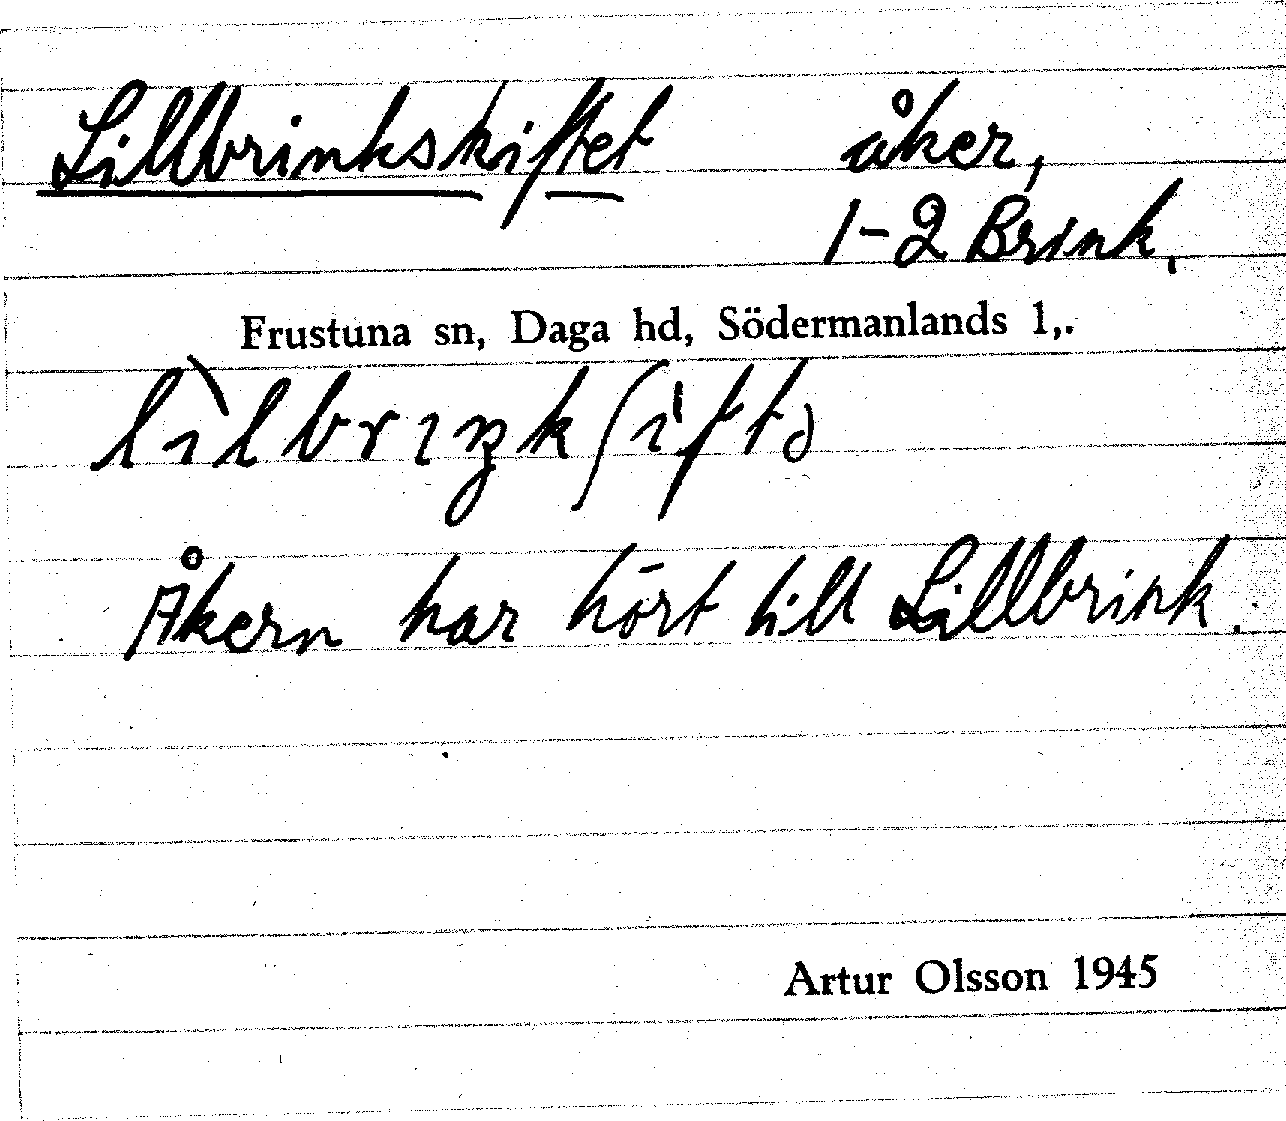 Lillbrinkskiftet åker,
1-2 Brink.
Frustuna sn, Daga hd, Södermanlands l,.
lìlbrıŋkʃiftə
Åkern har hört till Lillbrink.
Artur Olsson 1945